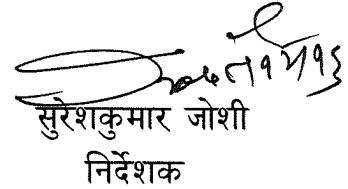 सुरेशकुमार जोशी
निर्देशक